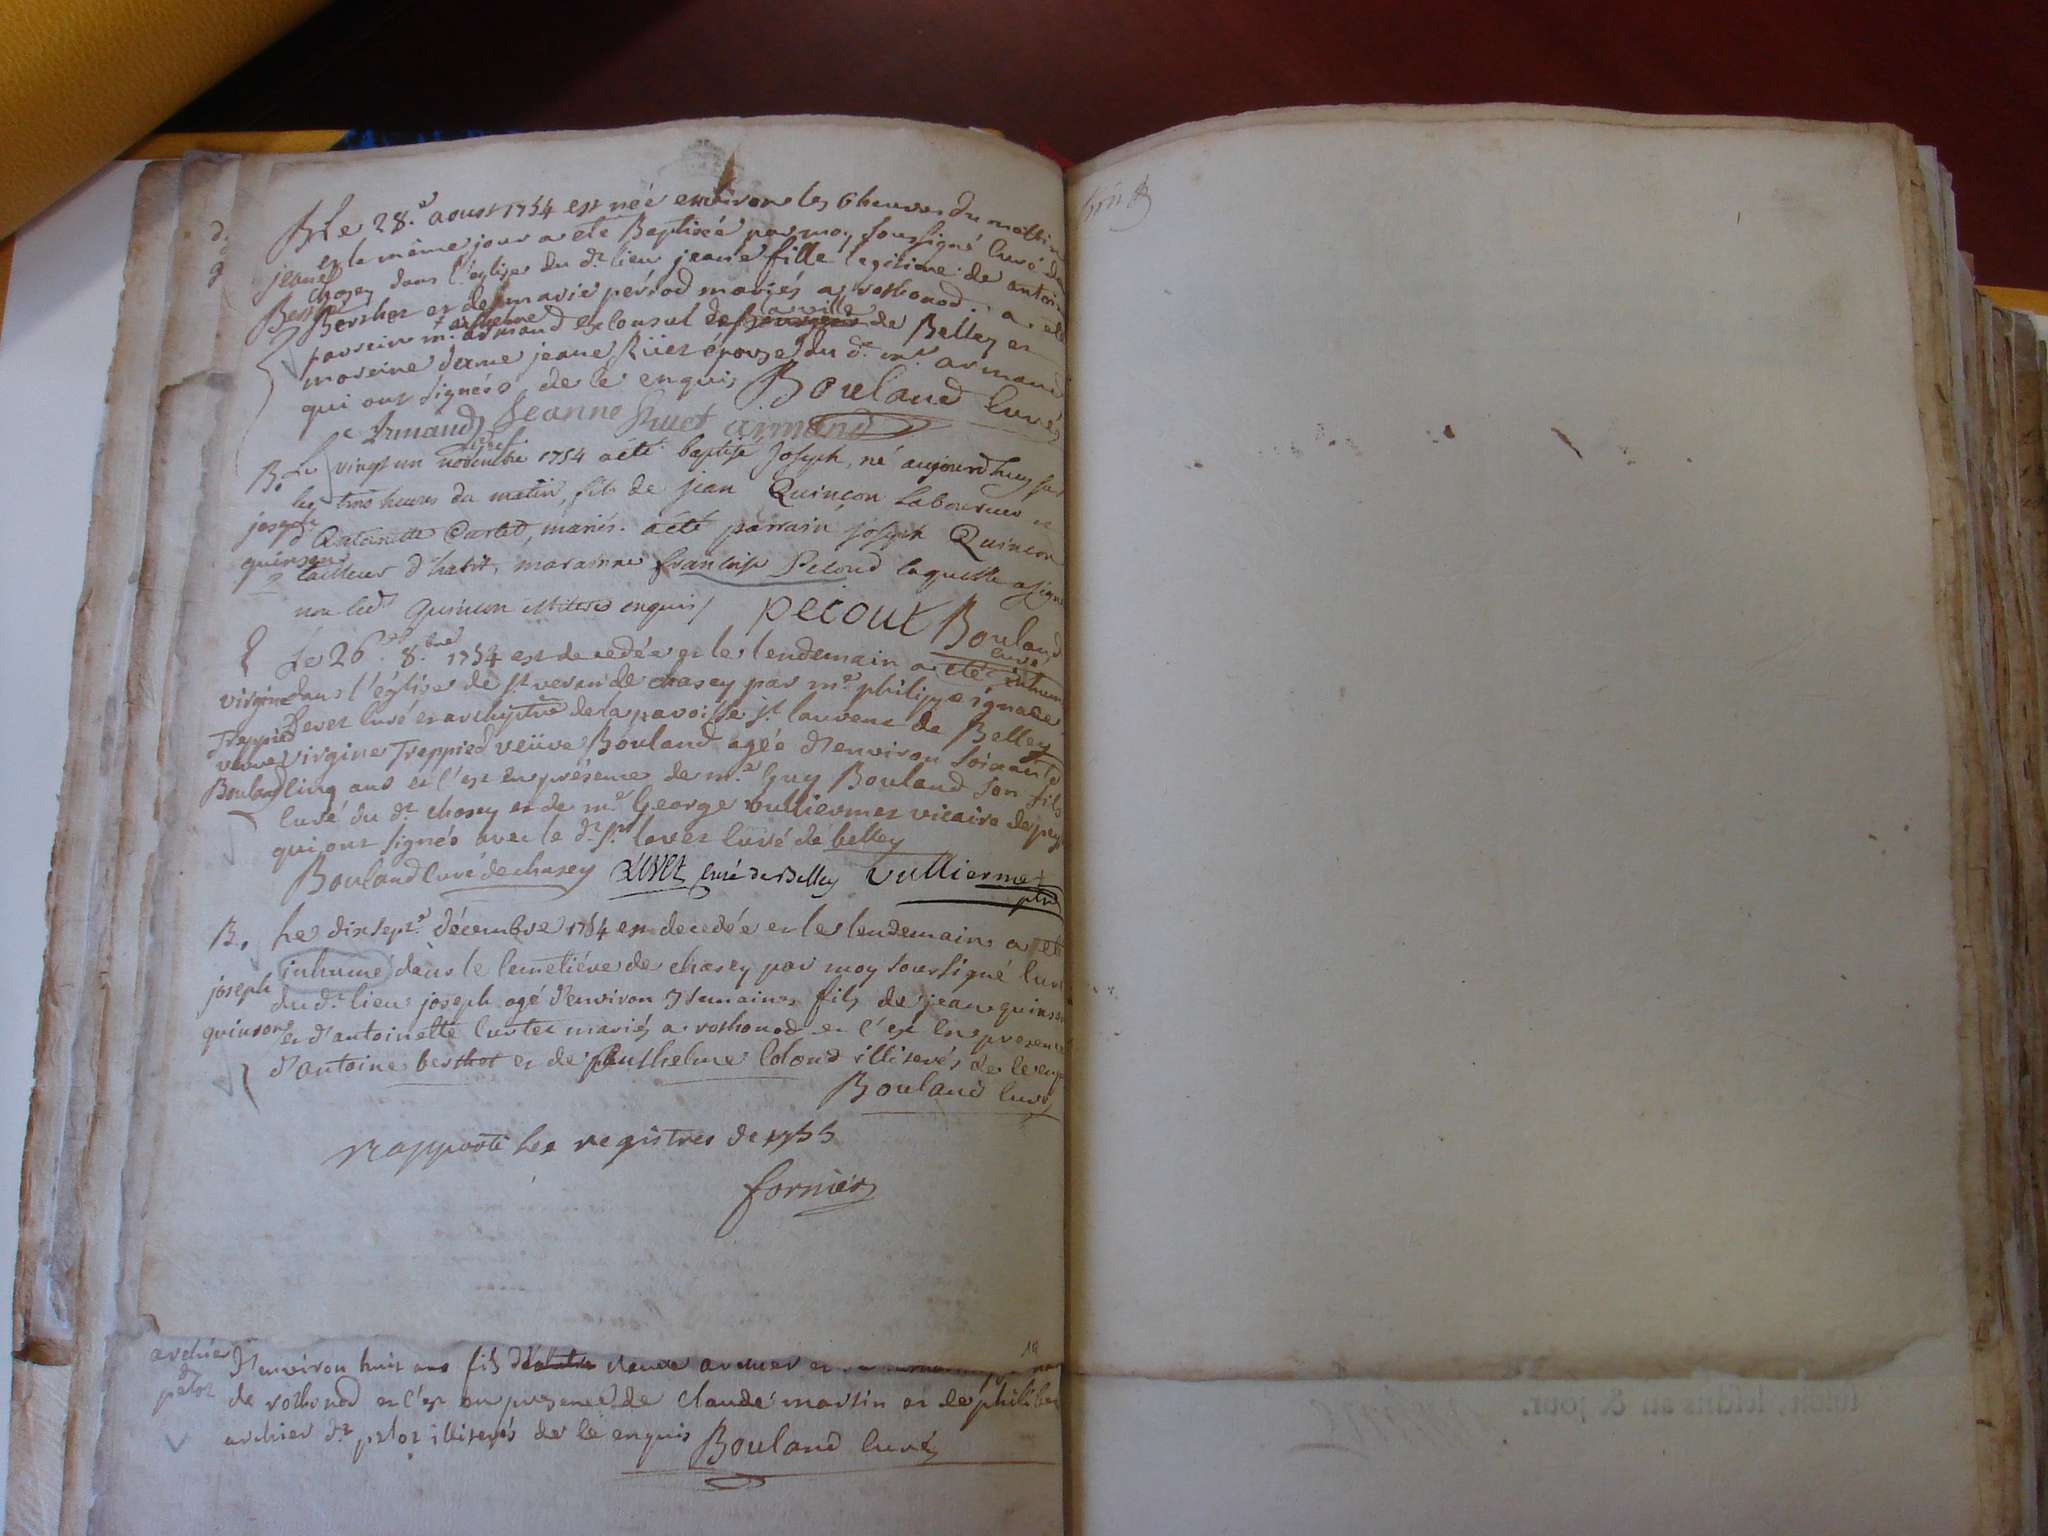 B Le 28.e aoust 1754 est née environ les 6 heures du mattin
et le même jour a été Baptisée par moy soussigné Curé du
jeane
chazey dans l'église du dt lieu jeane fille legitime de antoine
Berthet
Berthet et de marie périod mariés a rothonod. a été
parrein mr. anthelme armand exconsul de la ville de Belley et
mareine dame jeane Rüet épouse du dt mr armand
qui ont signés de ce enquis Bouland Curé
Armand Jeanne Ruet armand
B. Le vingt un novembre 1754 a été baptisé Joseph, né aujourd'huy sur
les trois heures du matin, fils de jean Quinçon Laboureur et
joseph
d'Antoinette Curtet, mariés. a été parrain joseph Quinçon
quinson
tailleur d'habit, marainne françoise Pecoud laquelle a signé
non led. Quinson illiteré enquis / pecout Bouland
curé
Le 26.e 8.bre 1754 est decedée et le lendemain a été inhumée
virgine dans l'église de st veran de chasey par mr. philippe ignace
Trappied
curé et archiprêtre de la paroisse st laurent de Belley
veuve virgine Treppied veüve Bouland agée d'environ soixante
Bouland cinq ans et c'est en présence de mr. Guy Bouland son fils
curé du dt chasey et de mr George vulliermet vicaire de
qui ont signés avec le dt sr curé de belley
Bouland curé de chasey curé de Belley Vulliermet
ptre
B. Le dix sept.e décembre 1754 est decedée et le lendemain a été
inhumé dans le cemetiére de chasey par moy soussigné curé
joseph
du dt lieu joseph agé d'environ 3 semaines fils de jean quinson
quinson et d'antoinette Curtet mariés a rothonod et c'est en presence
d'antoine berthet et de anthelme Colond illiterés de ce enquis
Bouland curé
rapporté les registres de 1755
fornier
archier d'environ huit ans fils
dt peloz
de rothonod et c'est en presence de claude martin et de philibert
archier dt peloz illiterés de ce enquis Bouland curé
tution, lesdits an & jour.